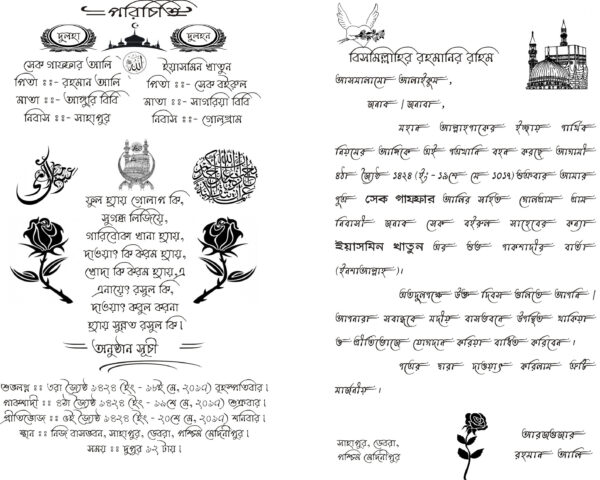 পরিচিতি
দুলহা
দুলহন
সেক গাফফার আলি
পিতা ঃঃ- রহমান আলি
মাতা ঃঃ- আঙ্গুরি বিবি
নিবাস ঃঃ- সাহাপুর
ইয়াসমিন খাতুন
পিতা ঃঃ- সেক বইরুল
মাতা ঃঃ- সাগরিয়া বিবি
নিবাস ঃঃ- গোলগ্রাম
ফুল হ্যায় গোলাপ কি,
সুগন্ধ লিজিয়ে,
গারিবোকা খানা হ্যায়,
দাওয়াৎ কি করম হ্যায়,
খোদা কি করম হ্যায়,এ
এনায়েৎ রসুল কি,
দাওয়াৎ কবুল করনা
হ্যায় সুন্নত রসুল কি।
অনুষ্ঠান সূচী
শুভলগ্ন ঃঃ ৩রা জ্যৈষ্ঠ ১৪২৪ (ইং - ১৮ই মে, ২০১৭) বৃহস্পতিবার।
পাকশাদী ঃঃ ৪ঠা জ্যৈষ্ঠ ১৪২৪ (ইং - ১৯শে মে, ২০১৭) শুক্রবার।
প্রীতিভোজ ঃঃ ৫ই জ্যৈষ্ঠ ১৪২৪ (ইং - ২০শে মে, ২০১৭) শনিবার।
স্থান ঃঃ নিজ বাসভবন, সাহাপুর, ডেবরা, পশ্চিম মেদিনীপুর।
সময় ঃঃ দুপুর ১২ টায়।
বিসমিল্লাহির রহমানির রহিম
আসসালামো আলাইকুম,
জনাব / জনাবা,
মহান আল্লাহপাকের ইচ্ছায় পার্থিব
নিয়মের আঙ্গিকে এই পত্রখানি বহন করছে আগামী
৪ঠা জ্যৈষ্ঠ ১৪২৪ (ইং - ১৯শে মে ২০১৭) শুক্রবার আমার
পুত্র সেক গাফফার আলির সহিত গোলগ্রাম গ্রাম
নিবাসী জনাব সেক বইরুল সাহেবের কন্যা
ইয়াসমিন খাতুন এর শুভ পাকশাদীর বার্তা
(ইনশাআল্লাহ)।
অতদুপলক্ষে উক্ত দিবস গুলিতে আপনি /
আপনারা সবান্ধবে মদীয় বাসভবনে উপস্থিত থাকিয়া
ও প্রীতিভোজে যোগদান করিয়া বাধিত করিবেন।
পত্রের দ্বারা দাওয়াৎ করিলাম ত্রুটি
মার্জনীয়।
সাহাপুর, ডেবরা,
পশ্চিম মেদিনীপুর
আরজগুজার
রহমান আলি